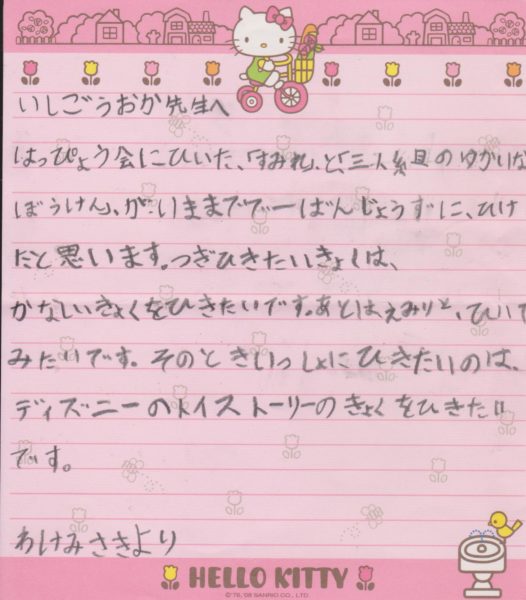 いしごうおか先生へ
はっぴょう会にひいた、「すみれ」と、「三人組のゆかいな
ぼうけん」、が、いままでで一ばんじょうずに、ひけ
たと思います。つぎひきたいきょくは、
かなしいきょくをひきたいです。あとは、えみりと、ひいて
みたいです。そのときいっしょにひきたいのは、
ディズニーのトイストーリーのきょくをひきたい
です。
わけみさきより
HELLO KITTY
©'76, '08 SANRIO CO., LTD.